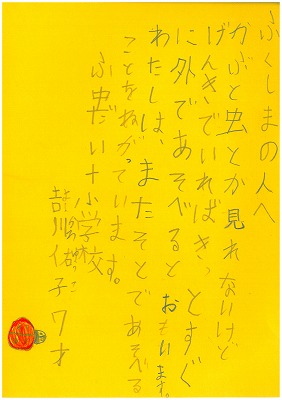 ふくしまの人へ
かぶと虫とか見れないけど
げんきでいればきっとすぐ
に外であそべるとおもいます。
わたしは、またそとであそべる
ことをねがっています。
ふ虫だい十小学校
吉川佑子 7才